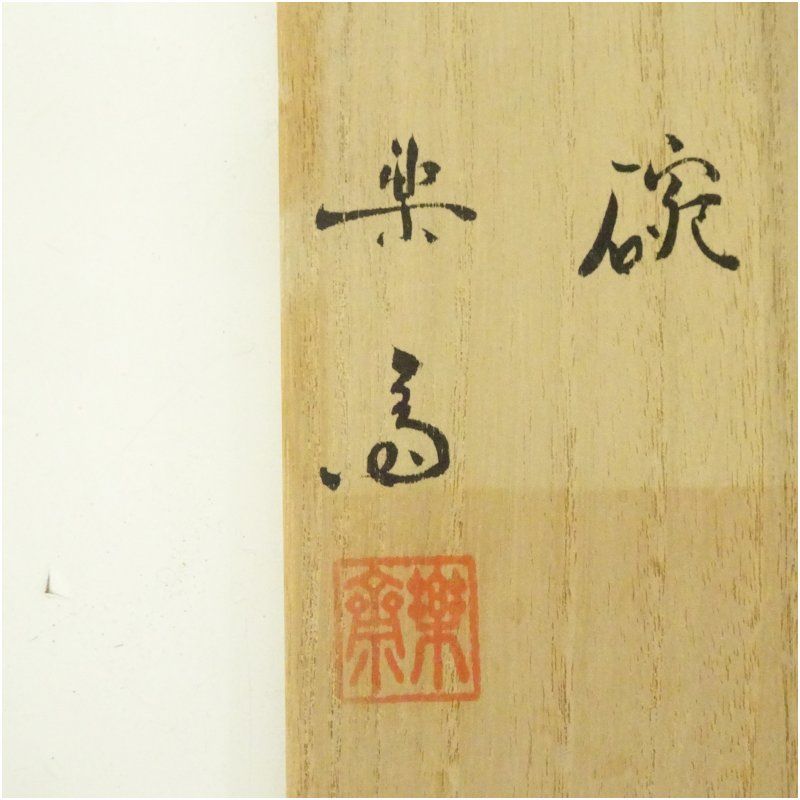 碗
楽斎
樂齋